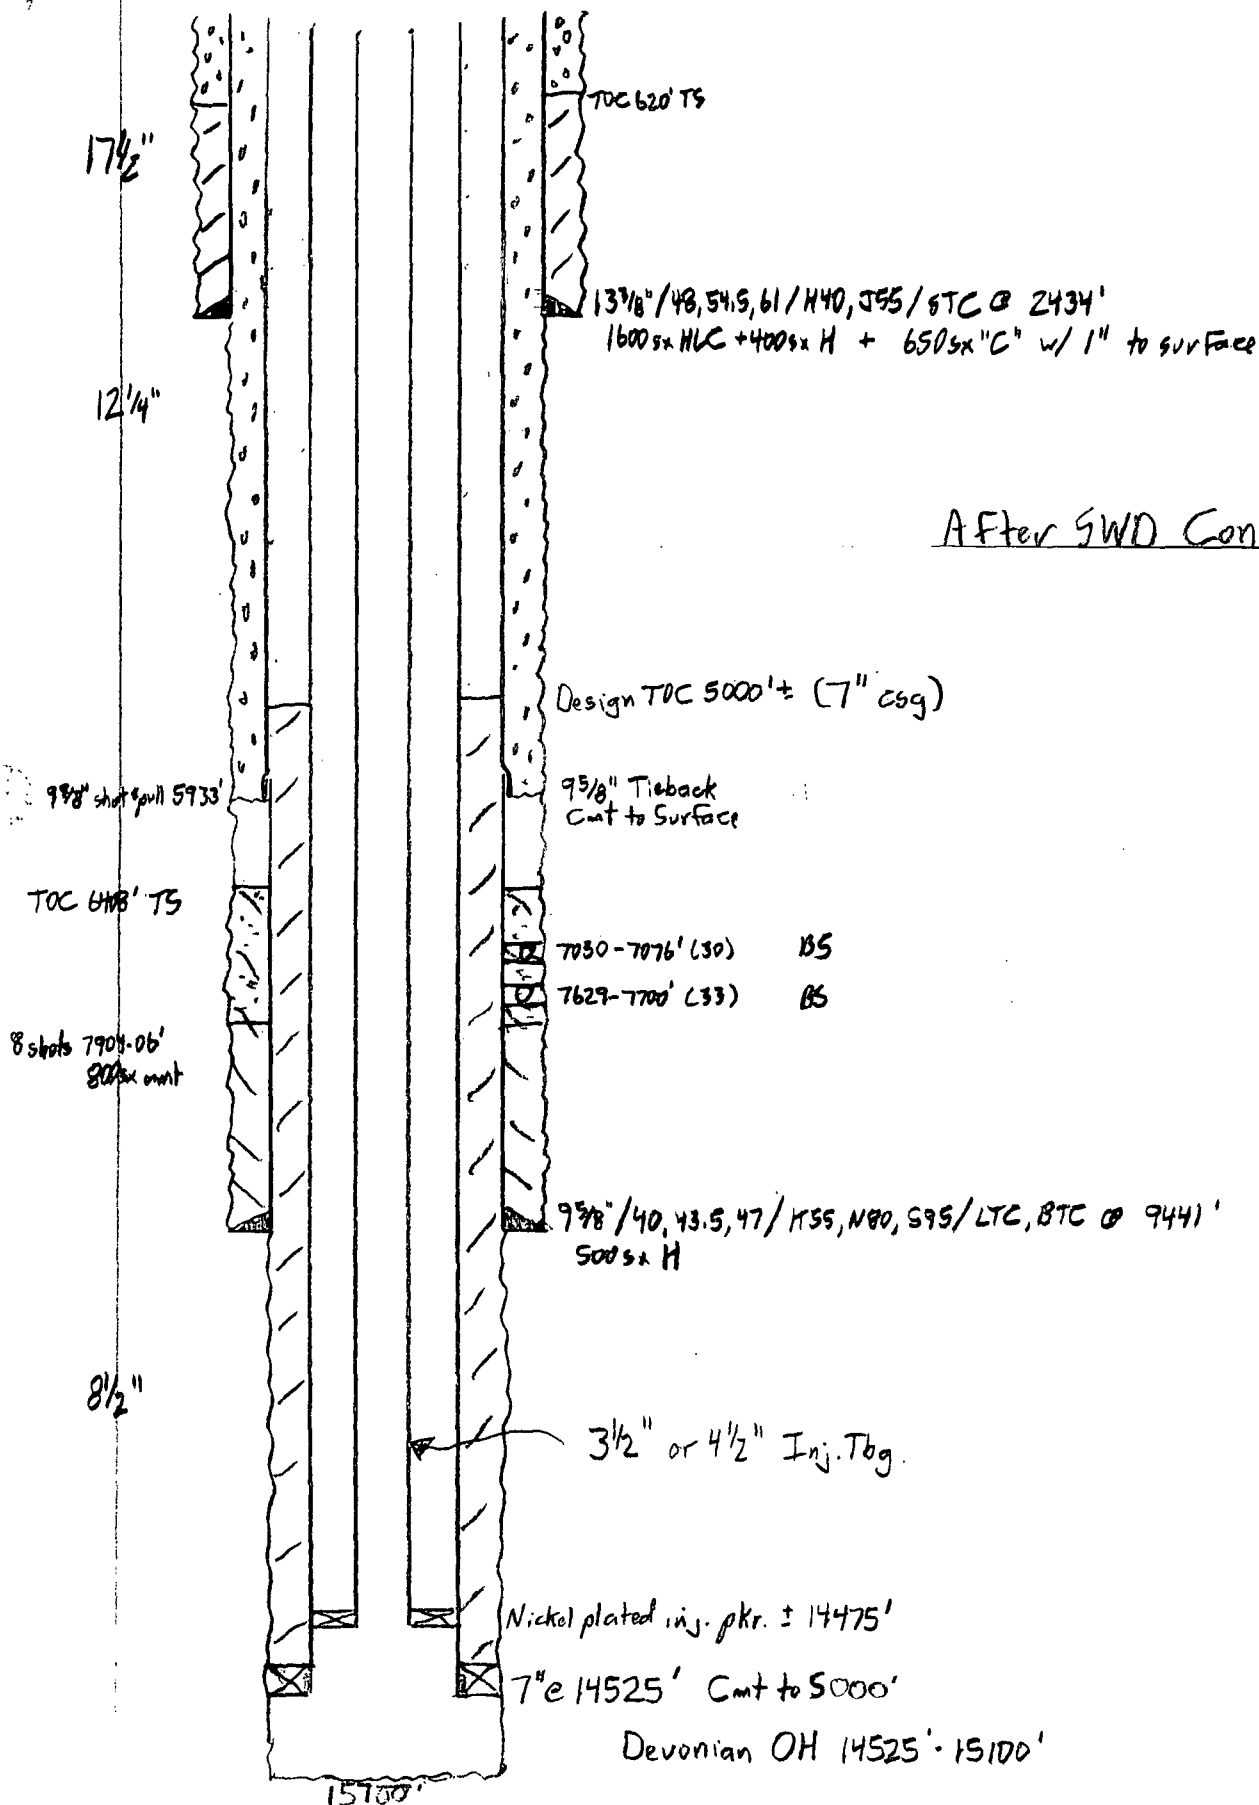 TOC 620' TS
17 1/2"
13 3/8" / 48, 54.5, 61 / H40, J55 / STC @ 2434'
1600 sx HLC + 400 sx H + 650 sx "C" w/ 1" to surface
12 1/4"
After SWD Con
Design TOC 5000' ± (7" csg)
9 5/8" shot & pull 5933'
9 5/8" Tieback
Cmt to Surface
TOC 6408' TS
7030-7076' (30) BS
7629-7700' (33) BS
8 shots 7904-06'
800 sx cmt
9 5/8" / 40, 43.5, 47 / K55, N80, S95 / LTC, BTC @ 9441'
500 sx H
8 1/2"
3 1/2" or 4 1/2" Inj. Tbg.
Nickel plated inj. pkr. ± 14475'
7" @ 14525' Cmt to 5000'
Devonian OH 14525' - 15100'